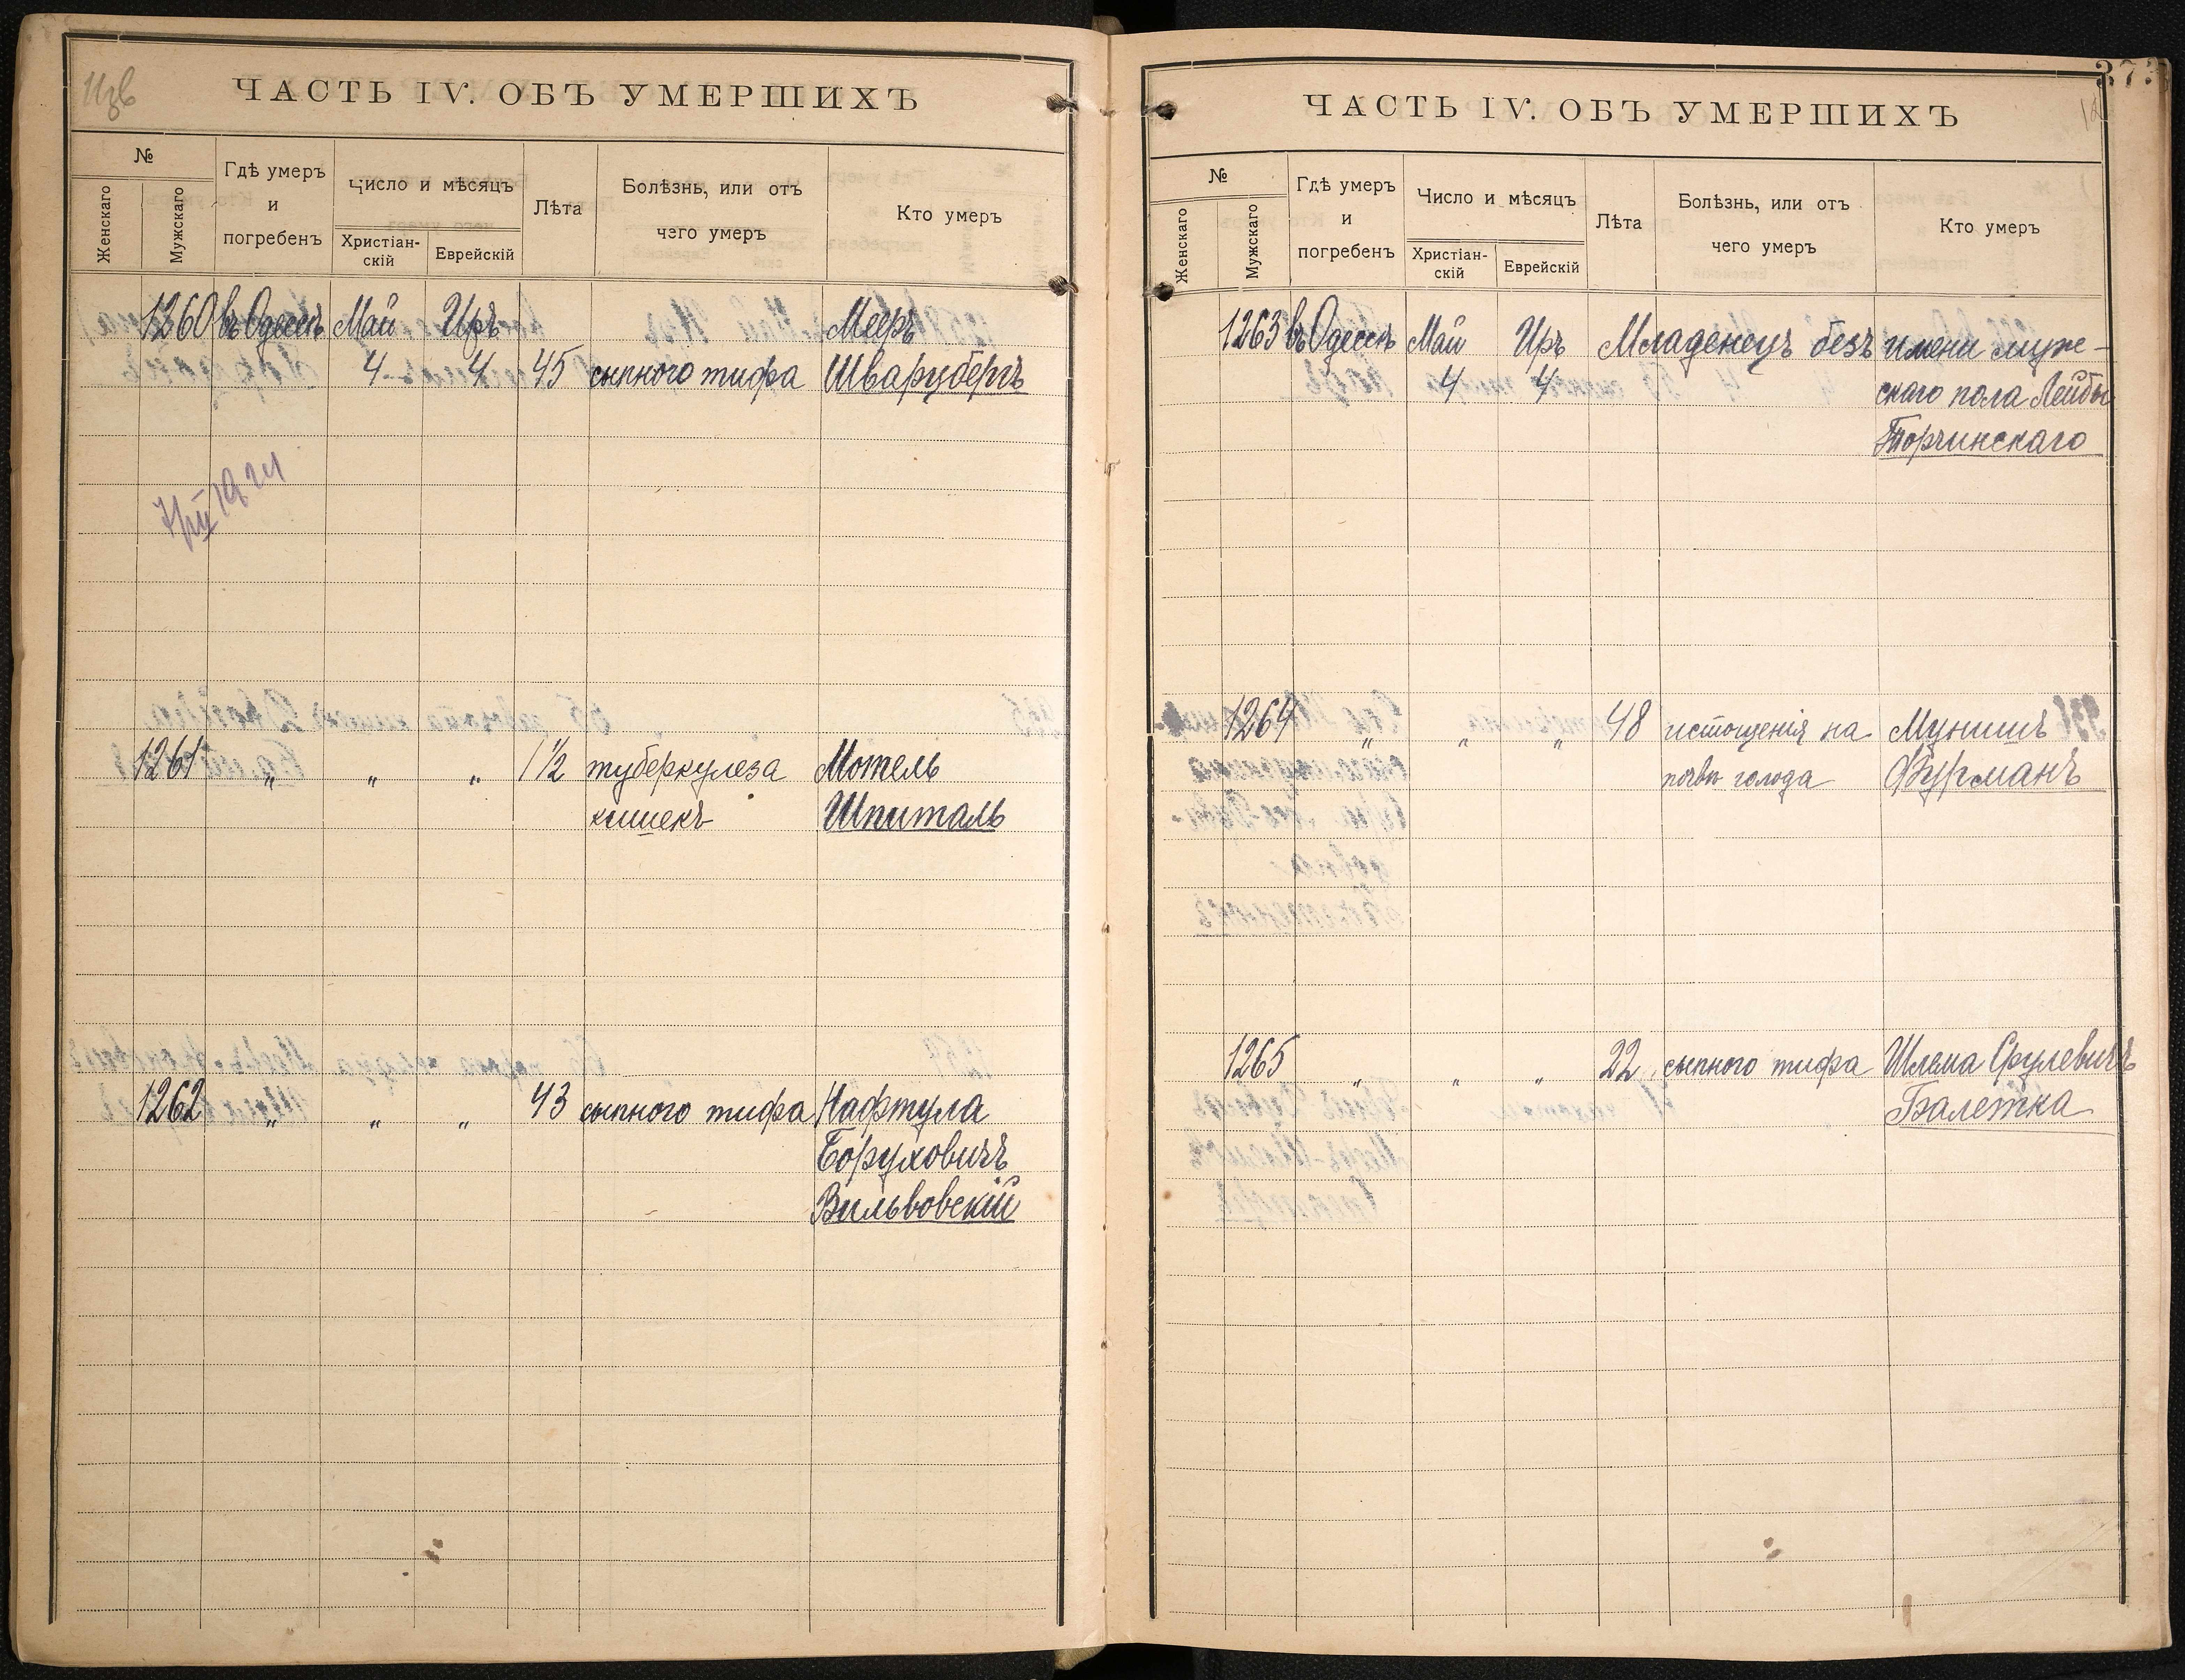 Изв
ЧАСТЬ IV. ОБЪ УМЕРШИХЪ
№
Женскаго
Мужскаго
Гдѣ умеръ
и
погребенъ
Число и мѣсяцъ
Христіан-
скій
Еврейскій
Лѣта
Болѣзнь, или отъ
чего умеръ
Кто умеръ
1260 въ Одессѣ Май Иръ Мееръ
4 4 45 сыпного тифа Шварцбергъ
1924
1261 „ „ „ 1½ туберкулеза Мотель
кишекъ Шпиталь
1262 „ „ „ 43 сыпного тифа Нафтула
Боруховичъ
Вильвовскій
373
12
ЧАСТЬ IV. ОБЪ УМЕРШИХЪ
№
Женскаго
Мужскаго
Гдѣ умеръ
и
погребенъ
Число и мѣсяцъ
Христіан-
скій
Еврейскій
Лѣта
Болѣзнь, или отъ
чего умеръ
Кто умеръ
1263 въ Одессѣ Май Иръ Младенецъ безъ имени муже-
4 4 скаго пола Лейбы
Торчинскаго
1264 „ „ „ 48 истощенія на Мунишъ
почвѣ голода Фурманъ
1265 „ „ „ 22 сыпного тифа Шлема Срулевичъ
Балетка